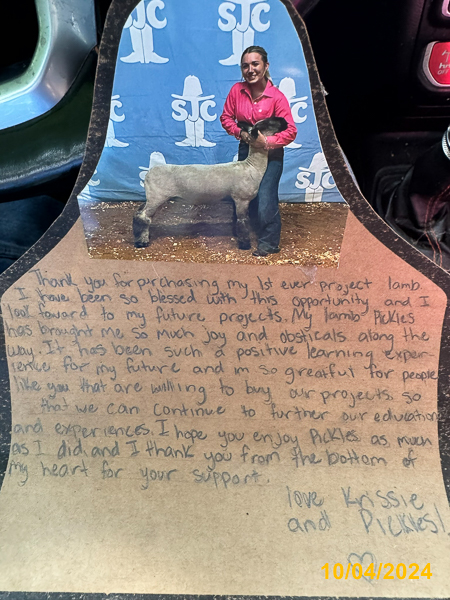 SJC
SJC
SJC
SJC
SJC
Thank you for purchasing my 1st ever project lamb
I have been so blessed with this opportunity and I
look foward to my future projects. My lamb Pickles
has brought me so much joy and obsticals along the
way. It has been such a positive learning exper-
ience for my future and im so greatful for people
like you that are willing to buy our projects so
that we can continue to further our education
and experiences. I hope you enjoy Pickles as much
as I did and I thank you from the bottom of
my heart for your support.
love Krissie
and Pickles!
10/04/2024